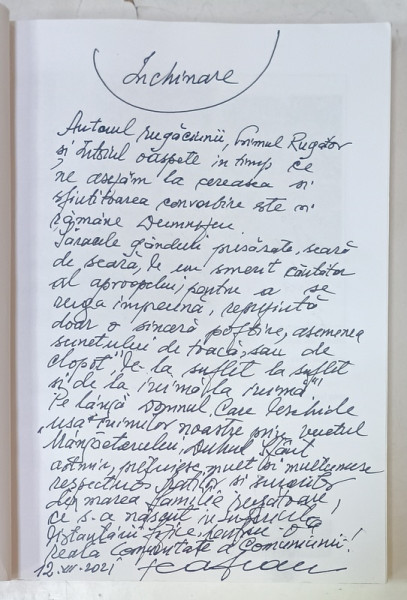 Închinare
Autorul rugăciunii, Primul Rugător
și Întâiul oaspete în timp ce
ne așezăm la cereasca și
sfințitoarea convorbire este și
rămâne Dumnezeu.
Săracele gânduri presărate, seară
de seară, de un smerit căutător
al aproapelui, pentru a se
ruga împreună, reprezintă
doar o sinceră poftire, asemenea
sunetului de toacă, sau de
clopot "de la suflet la suflet
și de la inimă la inimă"!
Pe lângă Domnul, Care deschide
"ușa" inimilor noastre prin
Mângâietorului, Duhul Sfânt
prețuiesc mult și mulțumesc
respectuos, fraților și surorilor
din marea familie rugătoare,
ce s-a născut în
fizice pentru a
reală Comunitate a Comuniunii!
12.XII.2021